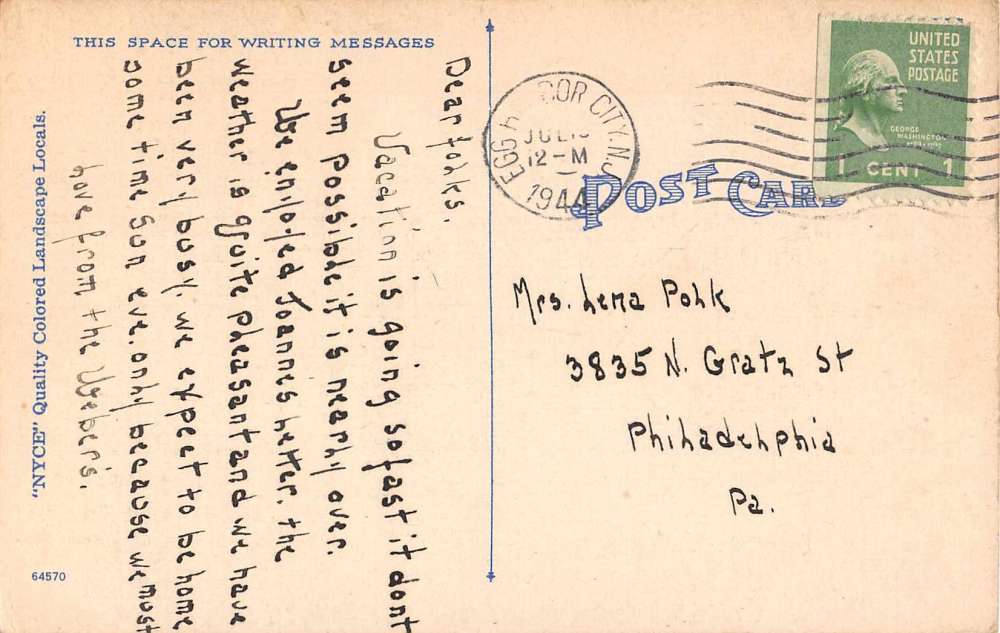 THIS SPACE FOR WRITING MESSAGES
Dear folks.
Vacation is going so fast it dont
seem possible it is nearly over.
We enjoyed Joannes letter. the
weather is quite pleasant and we have
been very busy. we expect to be home
some time Sun eve. only because we must
Love from the Webers.
"NYCE" Quality Colored Landscape Locals.
64570
EGG H BOR CITY, N.J.
JUL
12-M
1944
UNITED
STATES
POSTAGE
GEORGE
WASHINGTON
1789-1797
1 CENT 1
POST CARD
Mrs. Lena Polk
3835 N. Gratz St
Philadelphia
Pa.